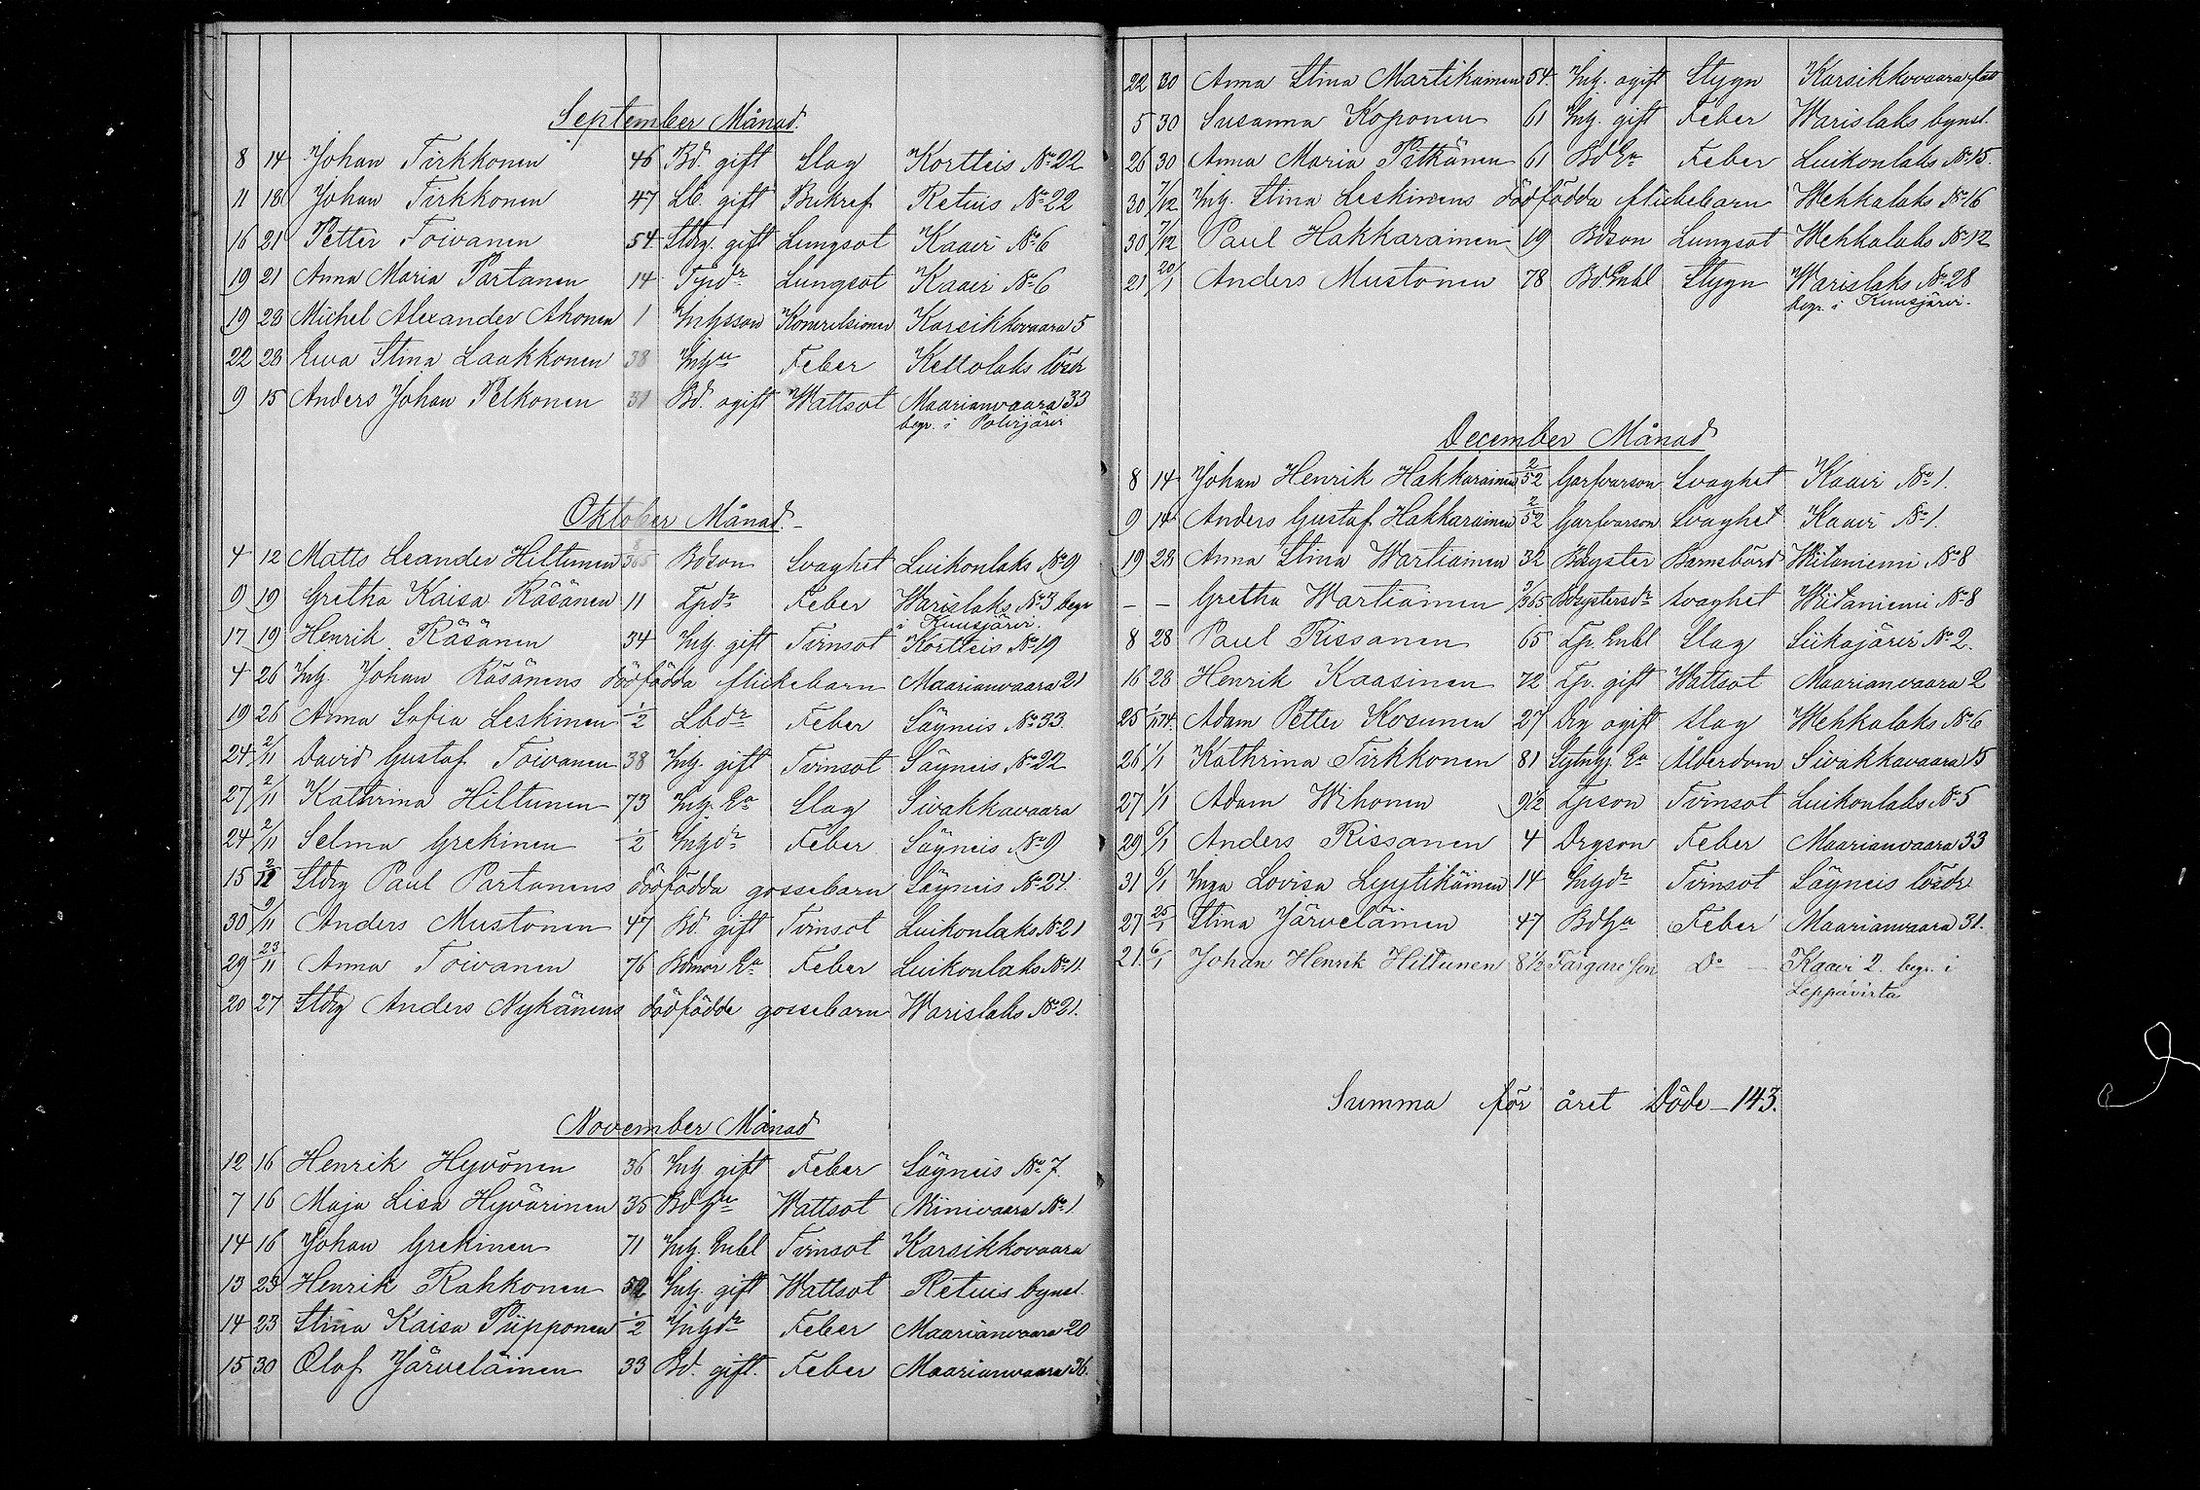 September Månad.
8 14 Johan Tirkkonen 46 Bd. gift Slag Kortteis No 22
11 18 Johan Tirkkonen 47 Lb. gift Retuis No 22
16 21 Petter Toivanen 54 Stdrg. gift Lungsot Kaavi No 6
19 21 Anna Maria Partanen 14 Tpdr Lungsot Kaavi No 6
19 23 Michel Alexander Ahonen 1 Inhysson Karsikkovaara 5
22 23 Ewa Stina Laakkonen 38 Feber Keltolaks lösdr
9 15 Anders Johan Pelkonen 31 Bd. ogift Wattsot Maarianvaara 33
begr. i Polvijärvi
Oktober Månad.
4 12 Matts Leander Hiltunen 8/365 Bdson Svaghet Luikonlaks No 9
9 19 Gretha Kaisa Räsänen 11 Lpdr Feber Warislaks No 3 begr
i Kuusjärvi.
17 19 Henrik Räsänen 34 Inh. gift Tvinsot Kortteis No 19
4 26 Inh. Johan Räsänens dödfödda flickebarn Maarianvaara 21
19 26 Anna Sofia Leskinen 1/2 Lbdr Feber Säyneis No 33.
24 2/11 David Gustaf Toivanen 38 Inh. gift Tvinsot Säyneis No 22
27 2/11 Kathrina Hiltunen 73 Inh. Ea Slag Sivakkavaara
24 2/11 Selma Grekinen 1/2 Inhdr Feber Säyneis No 9
15 2/11 Stdrg Paul Partanens dödfödda gossebarn Säyneis No 24.
30 9/11 Anders Mustonen 47 Bd. gift Tvinsot Luikonlaks No 21
29 23/11 Anna Toivanen 76 Bdmor Ea Feber Luikonlaks No 11.
20 27 Stdrg Anders Nykänens dödfödde gossebarn Warislaks No 21.
November Månad
12 16 Henrik Hyvönen 36 Inh gift Feber Säyneis No 7.
7 16 Maja Lisa Hyvärinen 35 Bdhu Wattsot Niinivaara No 1
14 16 Johan Grekinen 71 Inh. Enkl Tvinsot Karsikkovaara
13 23 Henrik Rahkonen 52 Inh. gift Wattsot Retuis bynsl.
14 23 Stina Kaisa Piipponen 1/2 Inhdr Feber Maarianvaara 20
15 30 Olof Järveläinen 33 Bd. gift. Feber Maarianvaara 36.
22 30 Anna Stina Martikainen 54. Inh. ogift Stygn Karsikkovaara
5 30 Susanna Koponen 61 Inh. gift Feber Warislaks bynsl.
26 30 Anna Maria Pitkänen 61 BdEa Feber Luikonlaks No 15.
30 7/12 Inh. Stina Leskinens dödfödda flickebarn Wehkalaks No 16
30 7/12 Paul Hakkarainen 19 Bdson Lungsot Wehkalaks No 12
21 20/1 Anders Mustonen 78 BdEnkl Stygn Warislaks No 28
begr. i Kuusjärvi.
December Månad
8 14 Johan Henrik Hakkarainen 2/52 Garfvarson Svaghet Kaavi No 1.
9 14 Anders Gustaf Hakkarainen 2/52 Garfvarson Svaghet Kaavi No 1.
19 28 Anna Stina Wartiainen 32 Bdsyster Barnsbörd Wiitaniemi No 8
- - Gretha Wartiainen 2/365 Bdsystersdr Svaghet Wiitaniemi No 8
8 28 Paul Rissanen 65 Lp. Enkl Slag Siikajärvi No 2.
16 28 Henrik Kaasinen 72 Lp. gift Wattsot Maarianvaara 2
25 1/1 74. Adam Petter Kosunen 27 Drg ogift Slag Wehkalaks No 6
26 1/1 Kathrina Tirkkonen 81 Ea Ålderdom Sivakkavaara 15
27 1/1 Adam Wihonen 9 1/2 Lpson Tvinsot Luikonlaks No 5
29 6/1 Anders Rissanen 4 Drgson Feber Maarianvaara 33
31 6/1 Inga Lovisa Lyytikäinen 14 Inhdr Tvinsot Säyneis lösdr
27 25/1 Stina Järveläinen 47 Bdhu Feber Maarianvaara 31.
21. 6/1 Johan Henrik Hiltunen 8 1/2 Färgare Son Do - Kaavi 2. begr. i
Leppävirta
Summa för året Döde - 143.